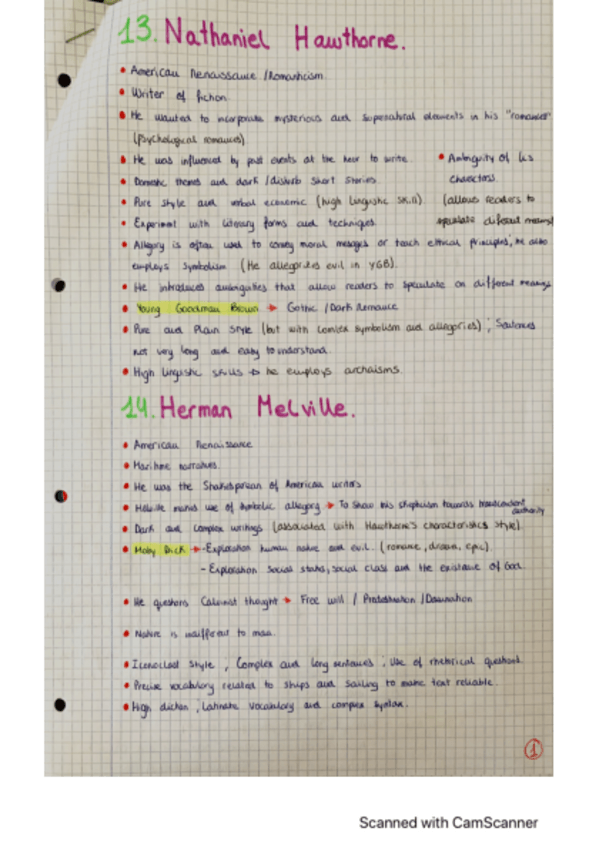 13. Nathaniel Hawthorne.
• American Renaissance / Romanticism
• Writer of fiction
• He wanted to incorporate mysterious and supernatural elements in his "romances"
(psychological romances)
• He was influenced by past events at the hour to write.
• Ambiguity of his
characters.
(allows readers to
speculate different meanings)
• Domestic themes and dark / disturb short stories.
• Pure style and verbal economic (high linguistic skill)
• Experiment with literary forms and techniques.
• Allegory is often used to convey moral mesages or teach ethical principles; he also
employs symbolism (He allegorizes evil in YGB).
• He introduces ambiguities that allow readers to speculate on different meanings
• Young Goodman Brown → Gothic / Dark Romance
• Pure and Plain style (but with complex symbolism and allegories); Sentences
not very long and easy to understand.
• High linguistic skills → he employs archaisms.
14. Herman Melville.
• American Renaissance
• Maritime narratives.
• He was the Shakespearean of American writers
• Melville makes use of symbolic allegory → To show his skepticism towards transcendent
authority
• Dark and complex writings (associated with Hawthorne's characteristics style)
• Moby Dick → - Exploration human nature and evil. (romance, drama, epic).
- Exploration social status, social class and the existence of God.
• He questions Calvinist thought → Free will / Predestination / Damnation
• Nature is indifferent to man.
• Iconoclast style; Complex and long sentences; Use of rhetorical questions.
• Precise vocabulary related to ships and sailing to make text reliable.
• High diction; Latinate vocabulary and complex syntax.
1
Scanned with CamScanner